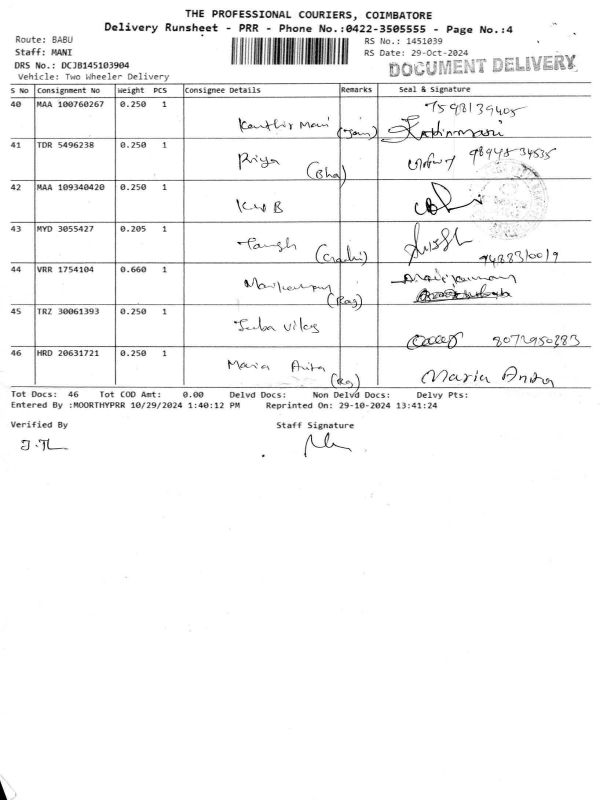 THE PROFESSIONAL COURIERS, COIMBATORE
Delivery Runsheet - PRR - Phone No.:0422-3505555 - Page No.:4
Route: BABU
RS No.: 1451039
Staff: MANI
RS Date: 29-Oct-2024
DRS No.: DCJB145103904
DOCUMENT DELIVERY
Vehicle: Two Wheeler Delivery
S No Consignment No Weight PCS Consignee Details Remarks Seal & Signature
40 MAA 100760267 0.250 1
7598139405
41 TDR 5496238 0.250 1 Priya (Bha) 9894534535
42 MAA 109340420 0.250 1 KVB
43 MYD 3055427 0.205 1
9488310019
44 VRR 1754104 0.660 1 (Rag)
45 TRZ 30061393 0.250 1 8072950383
46 HRD 20631721 0.250 1 Maria Anita Maria Anita
Tot Docs: 46 Tot COD Amt: 0.00 Delvd Docs: Non Delvd Docs: Delvy Pts:
Entered By :MOORTHYPRR 10/29/2024 1:40:12 PM Reprinted On: 29-10-2024 13:41:24
Verified By Staff Signature